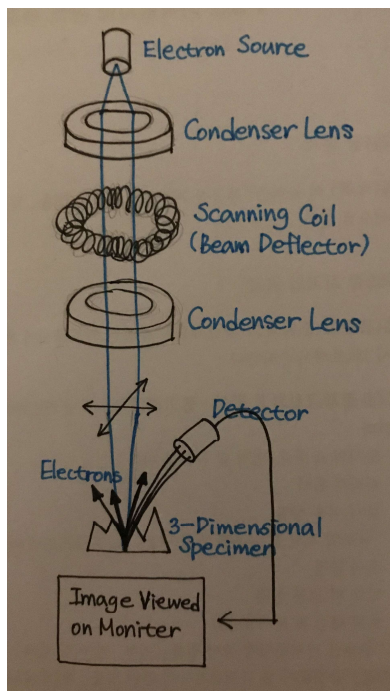 Electron Source
Condenser Lens
Scanning Coil
(Beam Deflector)
Condenser Lens
Detector
Electrons
3-Dimensional
Specimen
Image Viewed
on Moniter